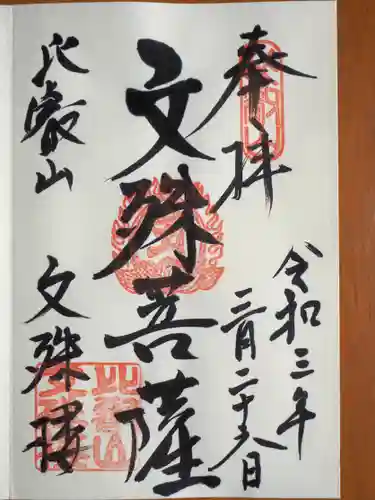 奉拝
令和三年
三月二十六日
文殊菩薩
比叡山
文殊楼